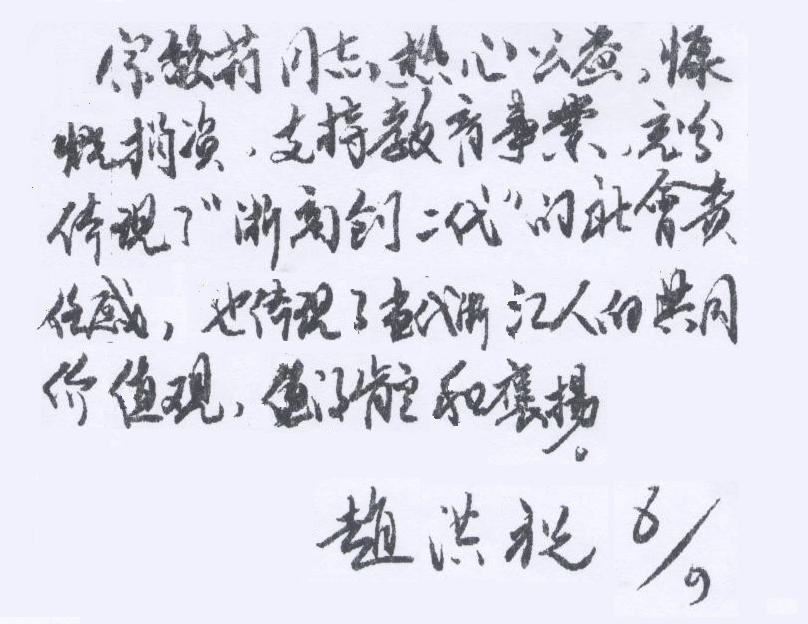 宗馥莉同志热心公益,慷
慨捐资,支持教育事業,充分
体现了“浙商创二代”的社會责
任感,也体现了当代浙江人的共同
价值观,值得肯定和褒揚。
趙洪祝 6/9